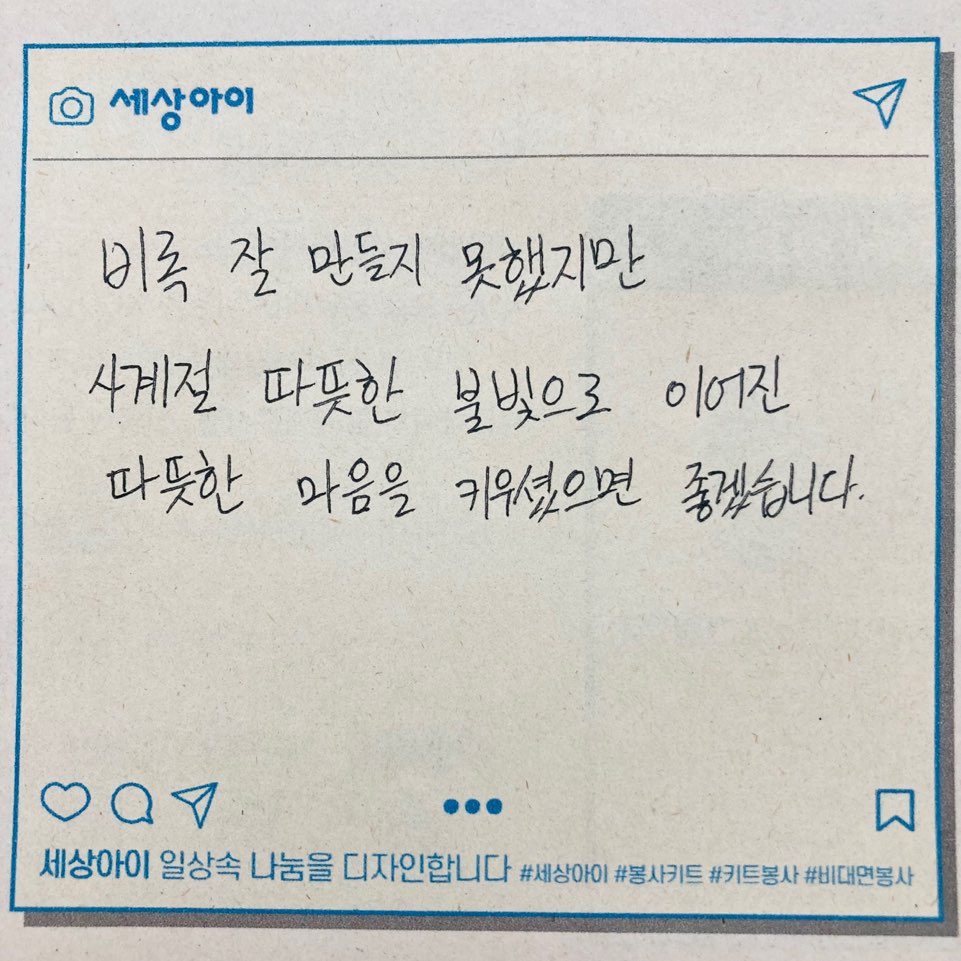 세상아이
비록 잘 만들지 못했지만
사계절 따뜻한 불빛으로 이어진
따뜻한 마음을 키우셨으면 좋겠습니다.
세상아이 일상속 나눔을 디자인합니다 #세상아이 #봉사키트 #키트봉사 #비대면봉사